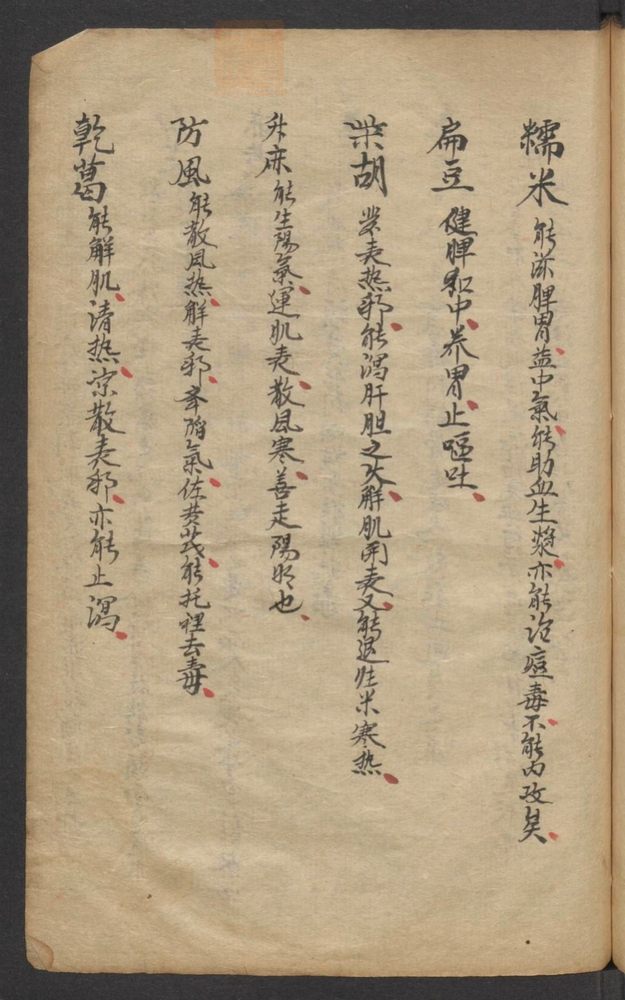 糯米 能滋脾胃益中氣能助血生漿亦能治痘毒不能内攻矣
扁豆 健脾和中养胃止嘔吐
柴胡 发表热邪能瀉肝胆之火解肌開表又能退往来寒热
升麻 能生陽氣運肌表散風寒善走陽明也
防風 能散風热解表邪 氣佐黄芪能托裡去毒
乾葛 能解肌清热凉散表邪亦能止瀉